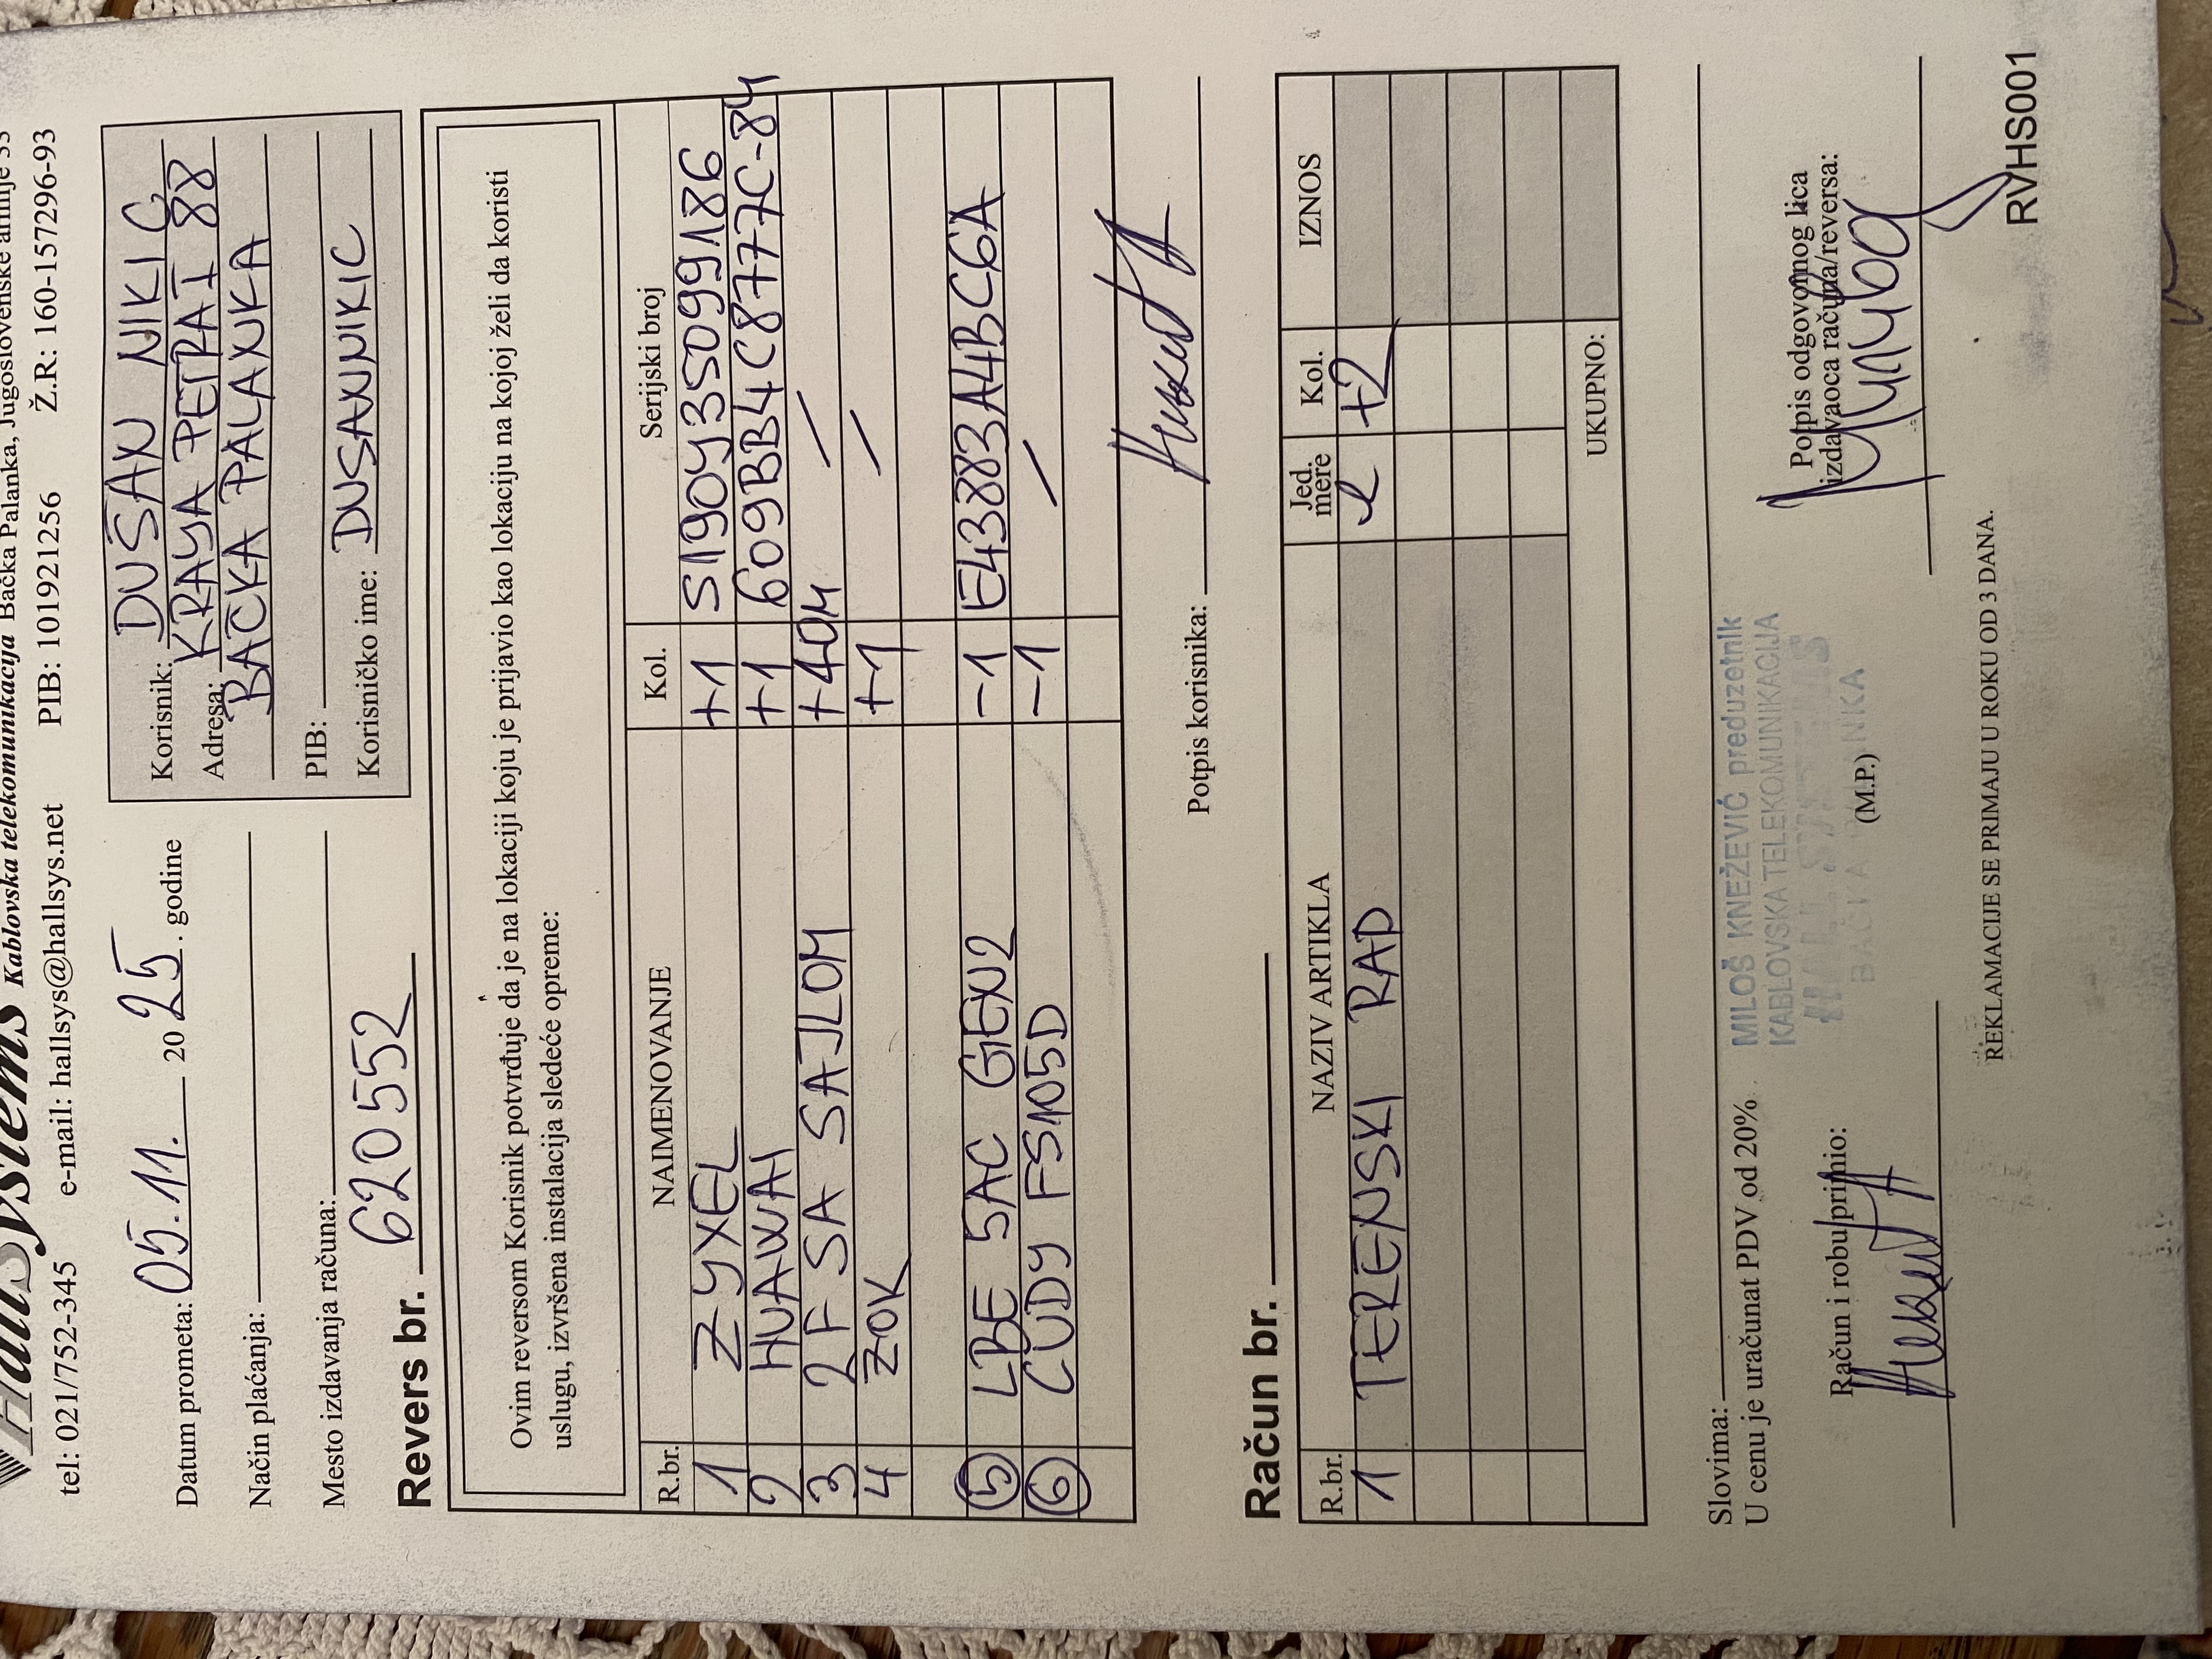 HallSystems Kablovska telekomunikacija Bačka Palanka, Jugoslovenske armije 33
tel: 021/752-345 e-mail: hallsys@hallsys.net PIB: 101921256 Ž.R: 160-157296-93
Datum prometa: 05.11. 20 25. godine
Način plaćanja:
Mesto izdavanja računa:
Korisnik: DUŠAN NIKIĆ
Adresa: KRAJA PETRA I 88
BAČKA PALANKA
PIB:
Korisničko ime: DUSANNIKIC
Revers br. 620552
Ovim reversom Korisnik potvrđuje da je na lokaciji koju je prijavio kao lokaciju na kojoj želi da koristi
uslugu, izvršena instalacija sledeće opreme:
R.br. NAIMENOVANJE Kol. Serijski broj
1 ZYXEL +1 S190Y35099186
2 HUAWAI +1 609BB4C8777C-84
3 2F SA SAJLOM +40M /
4 ZOK +1 /
5 LBE 5AC GEN2 -1 E43883A4BC6A
6 CUDY FS105D -1 /
Potpis korisnika:
Račun br.
R.br. NAZIV ARTIKLA Jed. mere Kol. IZNOS
1 TERENSKI RAD +2
UKUPNO:
Slovima:
U cenu je uračunat PDV od 20%
MILOŠ KNEŽEVIĆ preduzetnik
KABLOVSKA TELEKOMUNIKACIJA
HALL SYSTEMS
BAČKA PALANKA
Račun i robu primio:
(M.P.)
Potpis odgovornog lica
izdavaoca računa/reversa:
REKLAMACIJE SE PRIMAJU U ROKU OD 3 DANA.
RVHS001